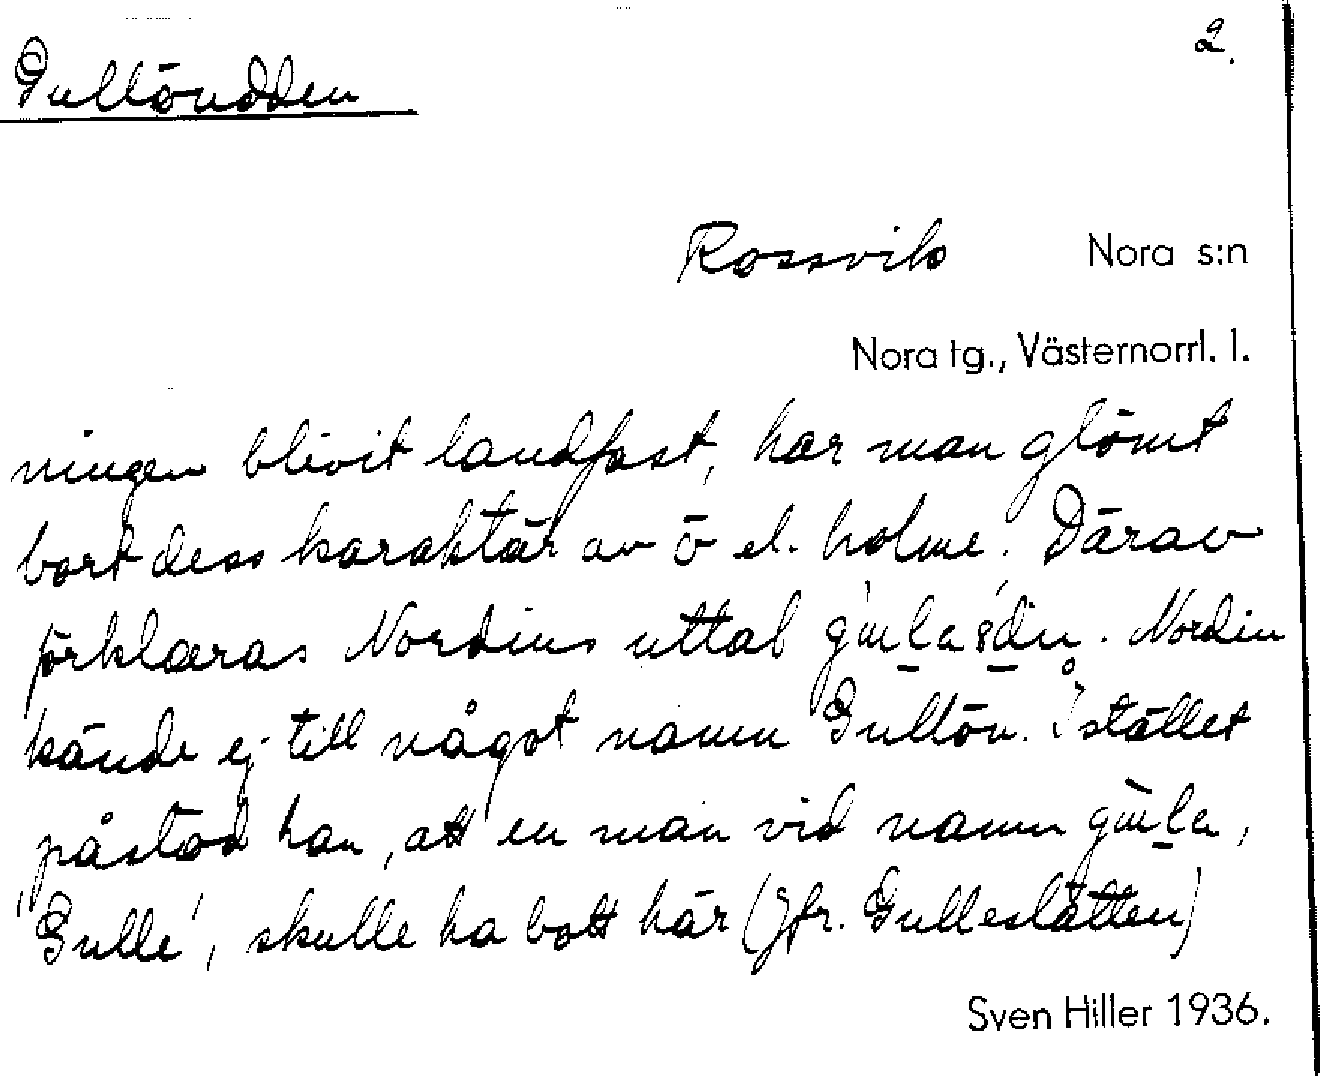 2.
Gullöudden
Rossvik Nora s:n
Nora tg., Västernorrl. l.
ningen blivit landfast, har man glömt
bort dess karaktär av ö el. holme. Därav
förklaras Nordins uttal. Nordin
kände ej till något namn Gullön. Istället
påstod han, att en man vid namn
"Gulle", skulle ha bott här (Jfr. Gulleslåtten)
Sven Hiller 1936.